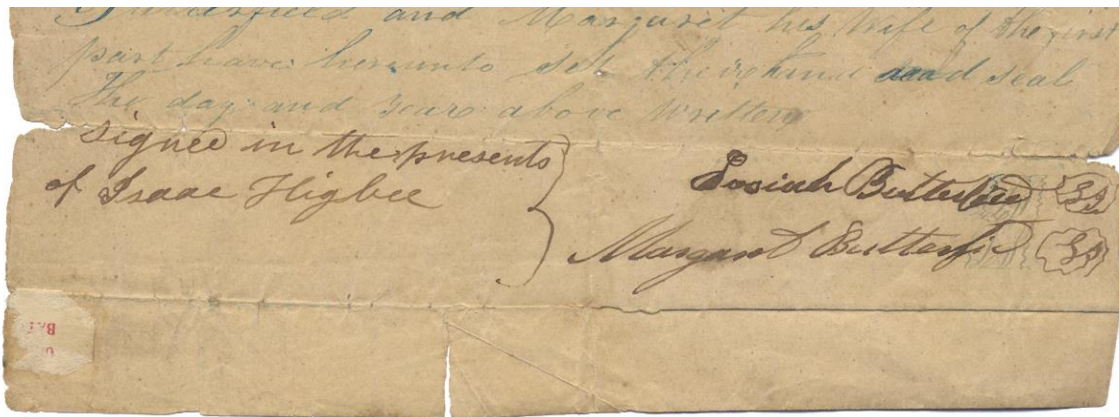 Butterfield and Margaret his Wife of the first
part have hereunto set their hand and seal
the day and year above written
signed in the presents
of Isaac Higbee
Josiah Butterfield
Margaret Butterfie